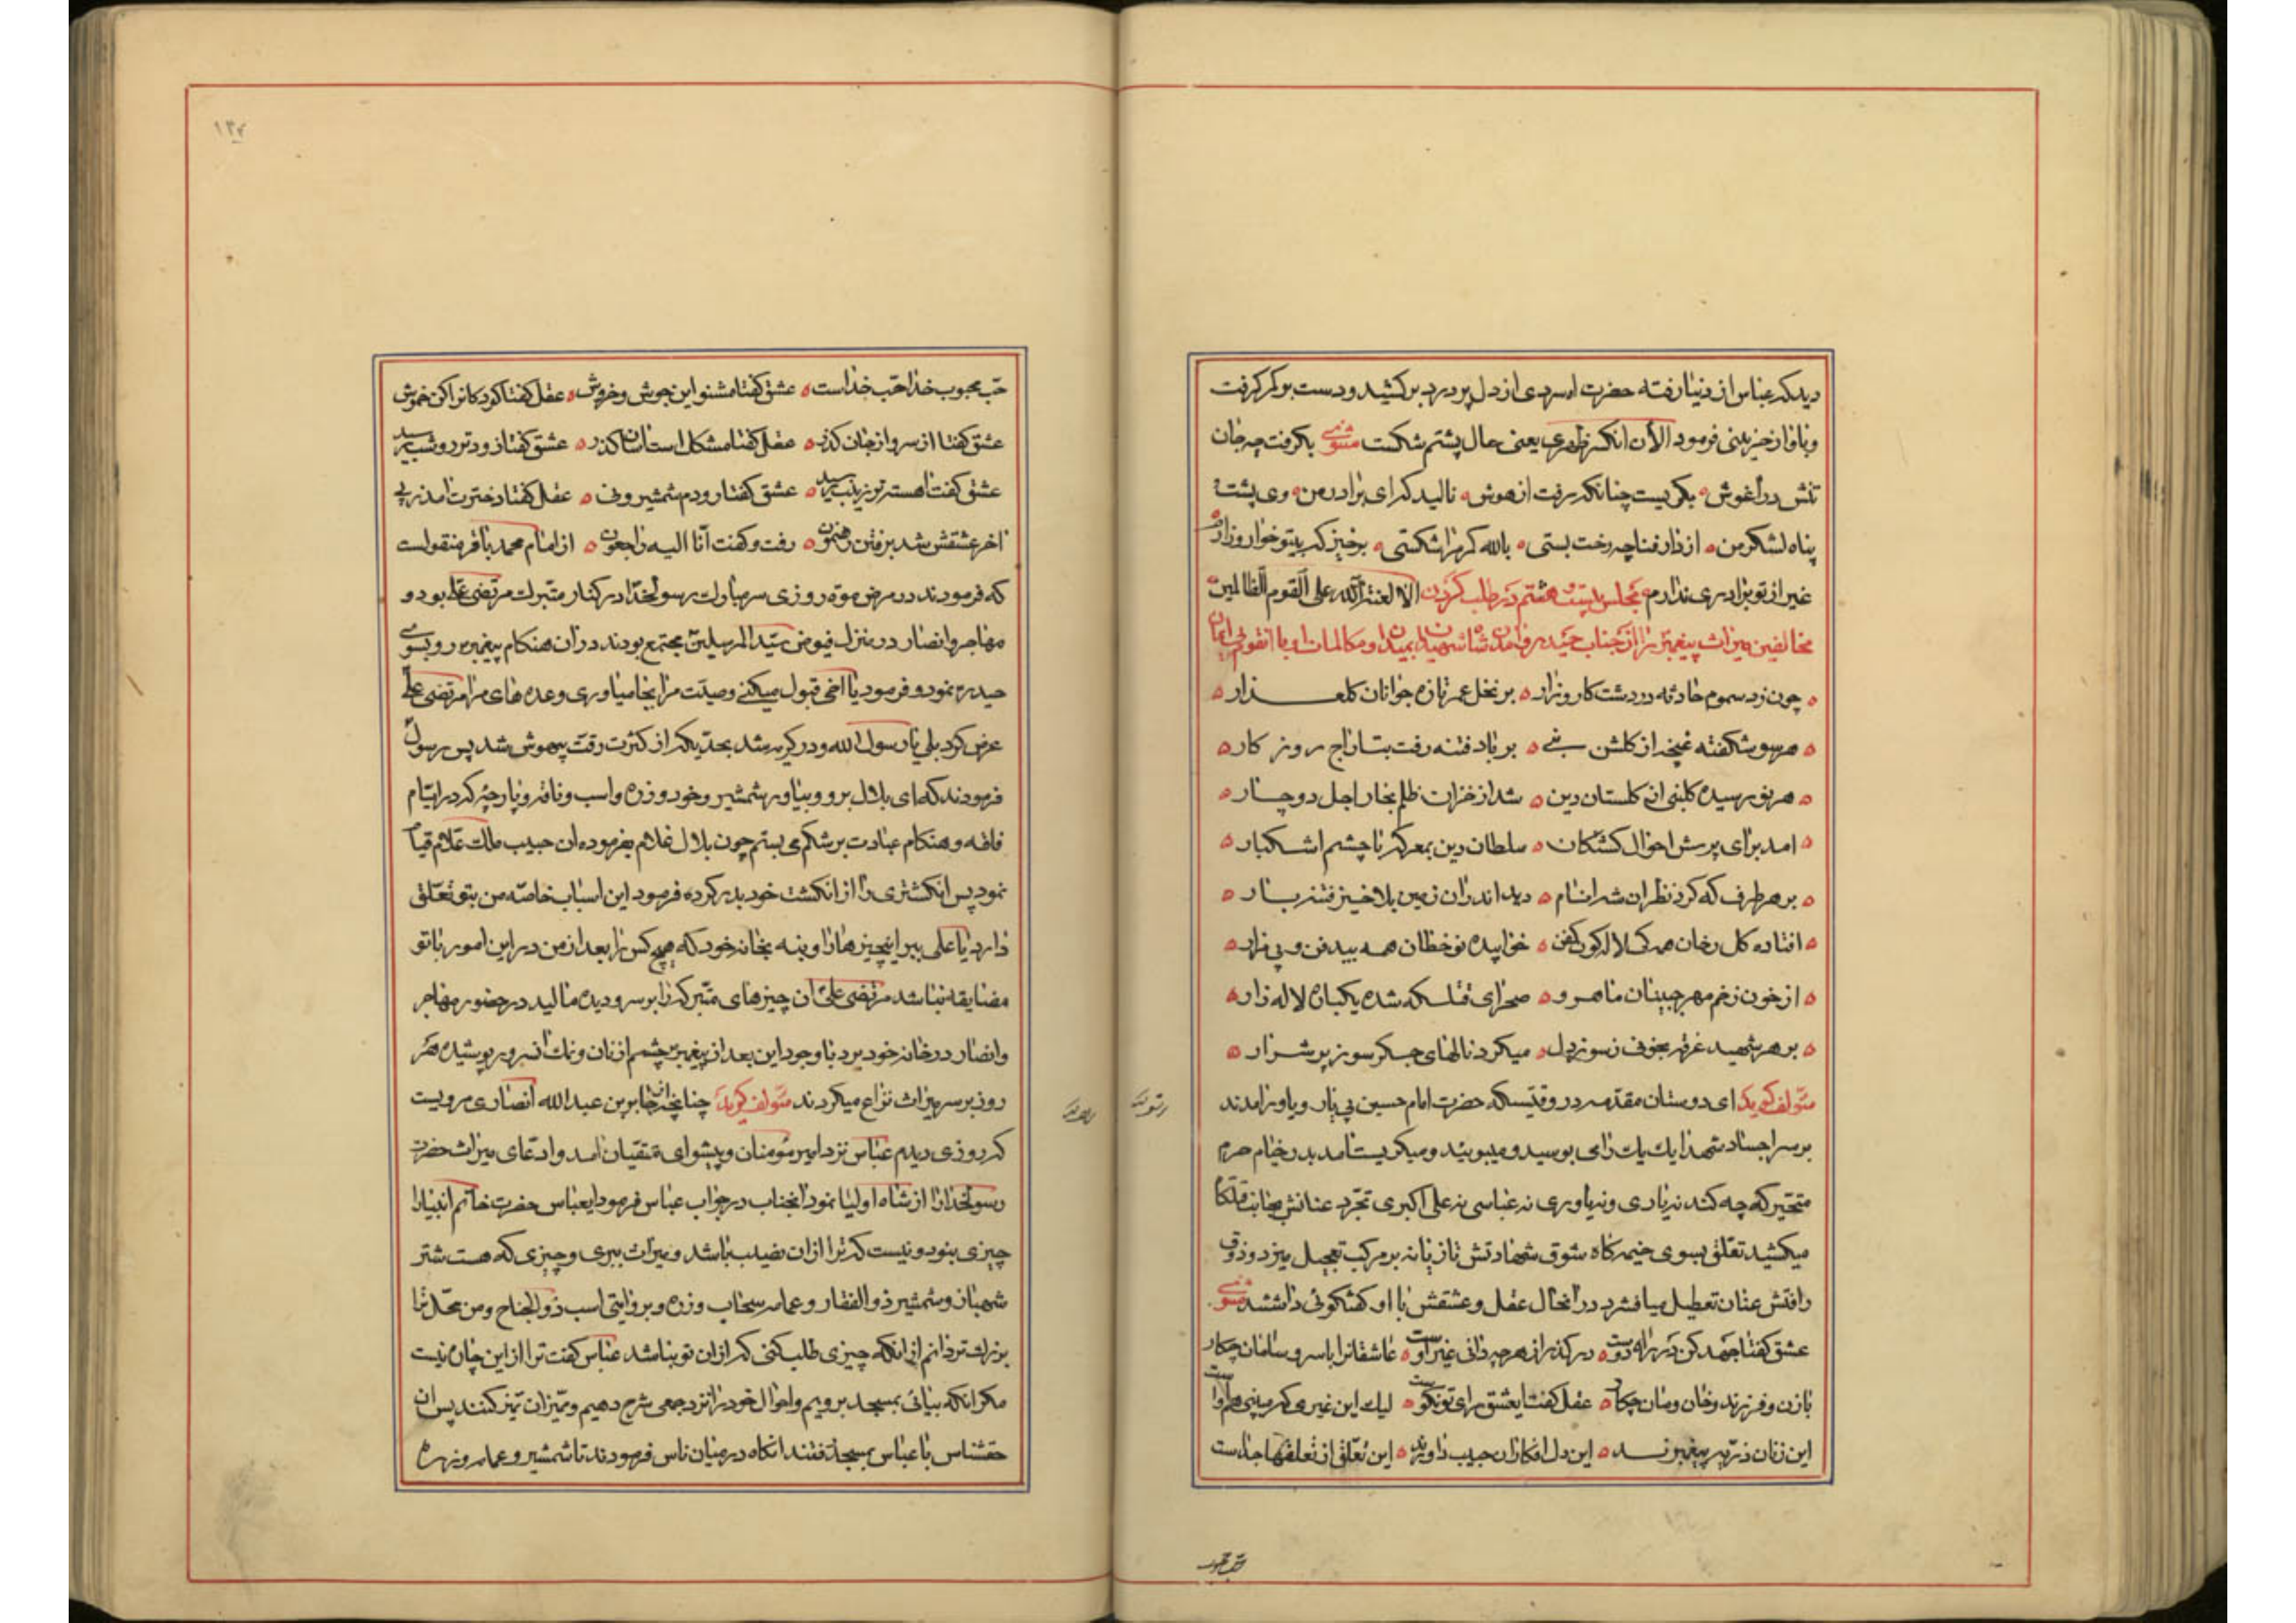 دید که عباس از دنیا رفته حضرت اه سردی از دل پر درد بر کشید و دست بر کمر گرفت
و باواز حزینی فرمود الأن انکسر ظهری یعنی حال پشتم شکست مثنوی بگرفت چه جان
تنش در آغوش بگریست چنانکه رفت از هوش نالید که ای برادر من وی پشت
پناه لشکر من از دار فنا چه رخت بستی بالله کمر مرا شکستی برخیز که بیتو خوار و زارم
غیر از تو برادری ندارم الا لعنة الله علی القوم الظالمین مجلس بیست هشتم در طلب کردن
مخالفین میراث پیغمبر را از جناب حیدر و امدن شاه شهیدان بمیدان و مکالمات او با انقوم بی ایمان
چون زد سموم حادثه در دشت کارزار بر نخل عمر تازه جوانان کلعذار
هر سو شکفته غنچه از کلشن نبی بر باد فتنه رفت بتاراج روزکار
هر نو رسیده کلبنی از کلستان دین شد از خزان ظلم بخار اجل دوچار
امد برای پرسش احوال کشتکان سلطان دین بمعرکه با چشم اشکبار
بر هر طرف که کرد نظر ان شه انام دید اندران زمین بلاخیز فتنه بار
افتاده کل رخان همکی لاله کون کفن خوابیده نوخطان همه بیدفن و بی مزار
از خون زخم مهر جبینان ماهرو صحرای قتلکه شده یکباره لاله زار
بر هر شهید غرقه بخونی ز سوز دل میکرد نالهای جکر سوز پر شرار
مؤلف کوید ای دوستان مقدمه در وقتیست که حضرت امام حسین بی یار و یاور امدند
بر سر اجساد شهدا یك یك را می بوسید و میبوئید و میکریست امد بدر خیام حرم
متحیر که چه کند نه یاری و نه یاوری نه عباسی نه علی اکبری تجرد عنانش بجانب قتلکاه
میکشید تعلق بسوی خیمه کاه شوق شهادتش تازیانه بر مرکب تعجیل میزد و ذوق
رافتش عنان تعطیل میافشرد در آنحال عقل و عشقش با او کفتکوئی داشتند مثنوی
عشق کفتا جهد کن در راه دوست در کذر از هر چه دانی غیر اوست عاشقانرا با سر و سامان چکار
با زن و فرزند و خان و مان چکار عقل کفت ایعشق رای تو نکوست لیك این غیری که میبینی هم اوست
این زنان ذریه پیغمبرند این دل افکاران حبیب داورند این تعلق از تعلقها جداست
حب محبوب
حب محبوب خدا حب خداست عشق کفتا مشنو این جوش و خروش عقل کفتا کودکانرا کن خموش
عشق کفتا از سر و از جان کذر عقل کفتا مشکل است اسان کذر عشق کفتا زودتر رو شب رسید
عشق کفتا رو دم شمشیر و نی عقل کفتا دخترت امد ز پی
اخر عشقش شد برفتن رهنمون رفت و کفت انا الیه راجعون از امام محمد باقر منقولست
که فرمودند در مرض موت روزی سر مبارك رسولخدا در کنار متبرك مرتضی علی بود و
مهاجر و انصار در منزل فیوض سید المرسلین مجتمع بودند در ان هنکام پیغمبر رو بسوی
حیدر نمود و فرمود یا اخی قبول میکنی وصیت مرا بجا میاوری وعده های مرا مرتضی علی
عرض کرد بلی یا رسول الله و در کریه شد بحدیکه از کثرت رقت بیهوش شد پس رسول
فرمودند که ای بلال برو و بیاور شمشیر و خود و زره و اسب و ناقه و پارچه که در ایام
فاقه و هنکام عبادت بر شکم می بستم چون بلال بفرموده ان حبیب ملك علام قیام
نمود پس انکشتری را از انکشت خود بدر کرده فرمود این اسباب خاصه من بتو تعلق
دارد یا علی ببر اینچیزها را و بنه بخانه خود که هیچ کس را بعد از من در این امور با تو
مضایقه نباشد مرتضی علی ان چیزهای متبرکه را بر سر و دیده مالید در حضور مهاجر
و انصار در خانه خود برد با وجود این بعد از پیغمبر چشم از نان و نمك ان سرور پوشیده هر
روز بر سر میراث نزاع میکردند مؤلف کوید چنانچه از جابر بن عبدالله انصاری مرویست
که روزی دیدم عباس نزد امیر مؤمنان و پیشوای متقیان امد و ادعای میراث حضرت
رسولخدا را از شاه اولیا نمود انجناب در جواب عباس فرمود ایعباس حضرت خاتم انبیارا
چیزی بنود و نیست که ترا از ان نصیب باشد و میراث ببری و چیزی که هست شتر
شهبا و شمشیر ذوالفقار و عمامه سحاب و زره و بروایتی اسب ذوالجناح و من محل ترا
بزرك تر دانم از انکه چیزی طلب کنی که از ان تو نباشد عباس کفت ترا از این چاره نیست
مکر انکه بیائی بمسجد برویم و احوال خود را نزد جمعی شرح دهیم و میزان تمیز کنند پس ان
حقشناس با عباس بمسجد رفتند انکاه در میان ناس فرمودند تا شمشیر و عمامه و زره